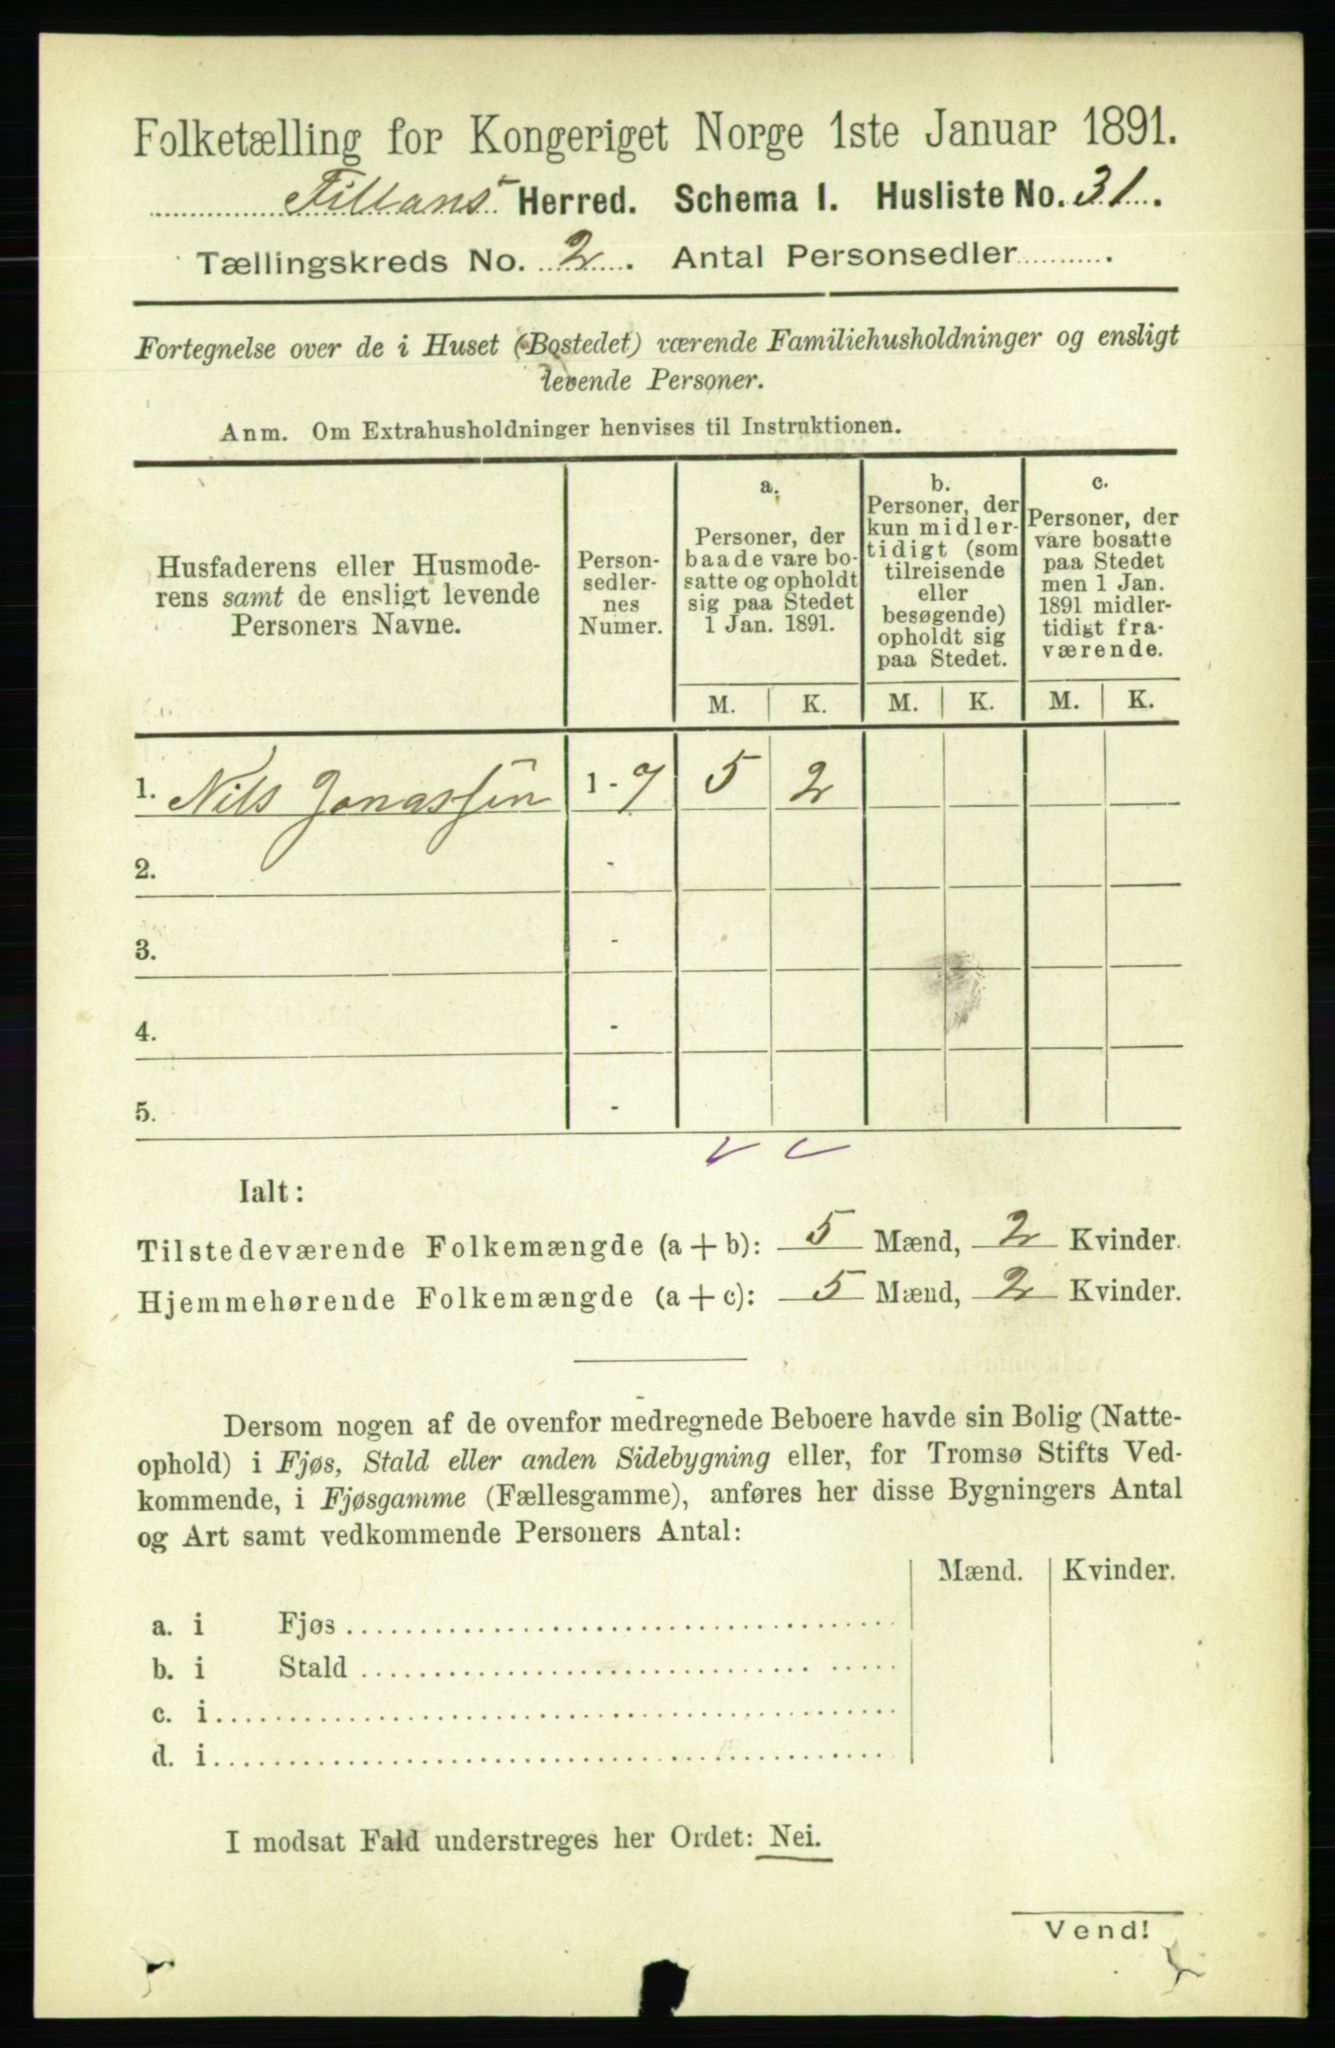 Folketælling for Kongeriget Norge 1ste Januar 1891.
Fillans Herred. Schema I. Husliste No. 31.
Tællingskreds No. 2. Antal Personsedler.
Fortegnelse over de i Huset (Bostedet) værende Familiehusholdninger og ensligt
levende Personer.
Anm. Om Extrahusholdninger henvises til Instruktionen.
Husfaderens eller Husmode-
rens samt de ensligt levende
Personers Navne.
Person-
sedler-
nes
Numer.
a.
Personer, der
baade vare bo-
satte og opholdt
sig paa Stedet
1 Jan. 1891.
b.
Personer, der
kun midler-
tidigt (som
tilreisende
eller
besøgende)
opholdt sig
paa Stedet.
c.
Personer, der
vare bosatte
paa Stedet
men 1 Jan.
1891 midler-
tidigt fra-
værende.
M. K. M. K. M. K.
1. Nils Jonassen 1-7 5 2
2. -
3. -
4. -
5. -
Ialt:
Tilstedeværende Folkemængde (a+b): 5 Mænd, 2 Kvinder.
Hjemmehørende Folkemængde (a+c): 5 Mænd, 2 Kvinder.
Dersom nogen af de ovenfor medregnede Beboere havde sin Bolig (Natte-
ophold) i Fjøs, Stald eller anden Sidebygning eller, for Tromsø Stifts Ved-
kommende, i Fjøsgamme (Fællesgamme), anføres her disse Bygningers Antal
og Art samt vedkommende Personers Antal:
Mænd. Kvinder.
a. i Fjøs
b. i Stald
c. i
d. i
I modsat Fald understreges her Ordet: Nei.
Vend!